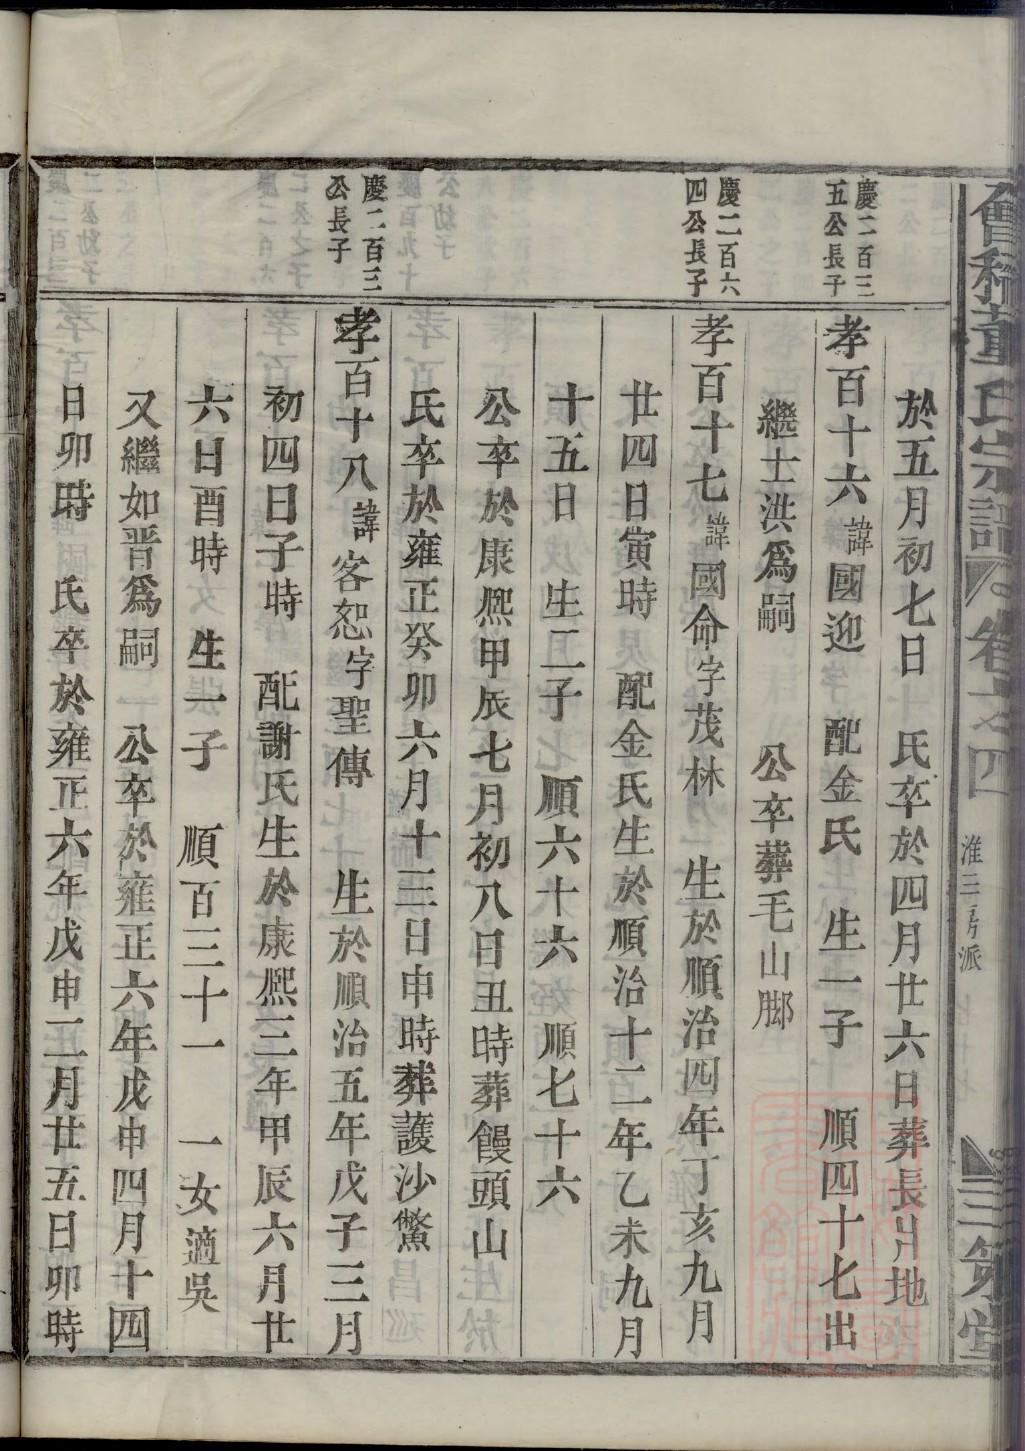 會稽董氏宗譜 卷之四 淮三房派 三策堂
於五月初七日 氏卒於四月廿六日葬長爿地
慶二百三
五公長子
孝百十六諱國迎 配金氏 生一子 順四十七出
繼士洪爲嗣 公卒葬毛山脚
慶二百六
四公長子
孝百十七諱國命字茂林 生於順治四年丁亥九月
廿四日寅時 配金氏生於順治十二年乙未九月
十五日 生二子 順六十六 順七十六
公卒於康熙甲辰七月初八日丑時葬饅頭山
氏卒於雍正癸卯六月十三日申時葬護沙鱉
慶二百三
公長子
孝百十八諱客恕字聖傳 生於順治五年戊子三月
初四日子時 配謝氏生於康熙三年甲辰六月廿
六日酉時 生一子 順百三十一 一女適吳
又繼如晋爲嗣 公卒於雍正六年戊申四月十四
日卯時 氏卒於雍正六年戊申二月廿五日卯時